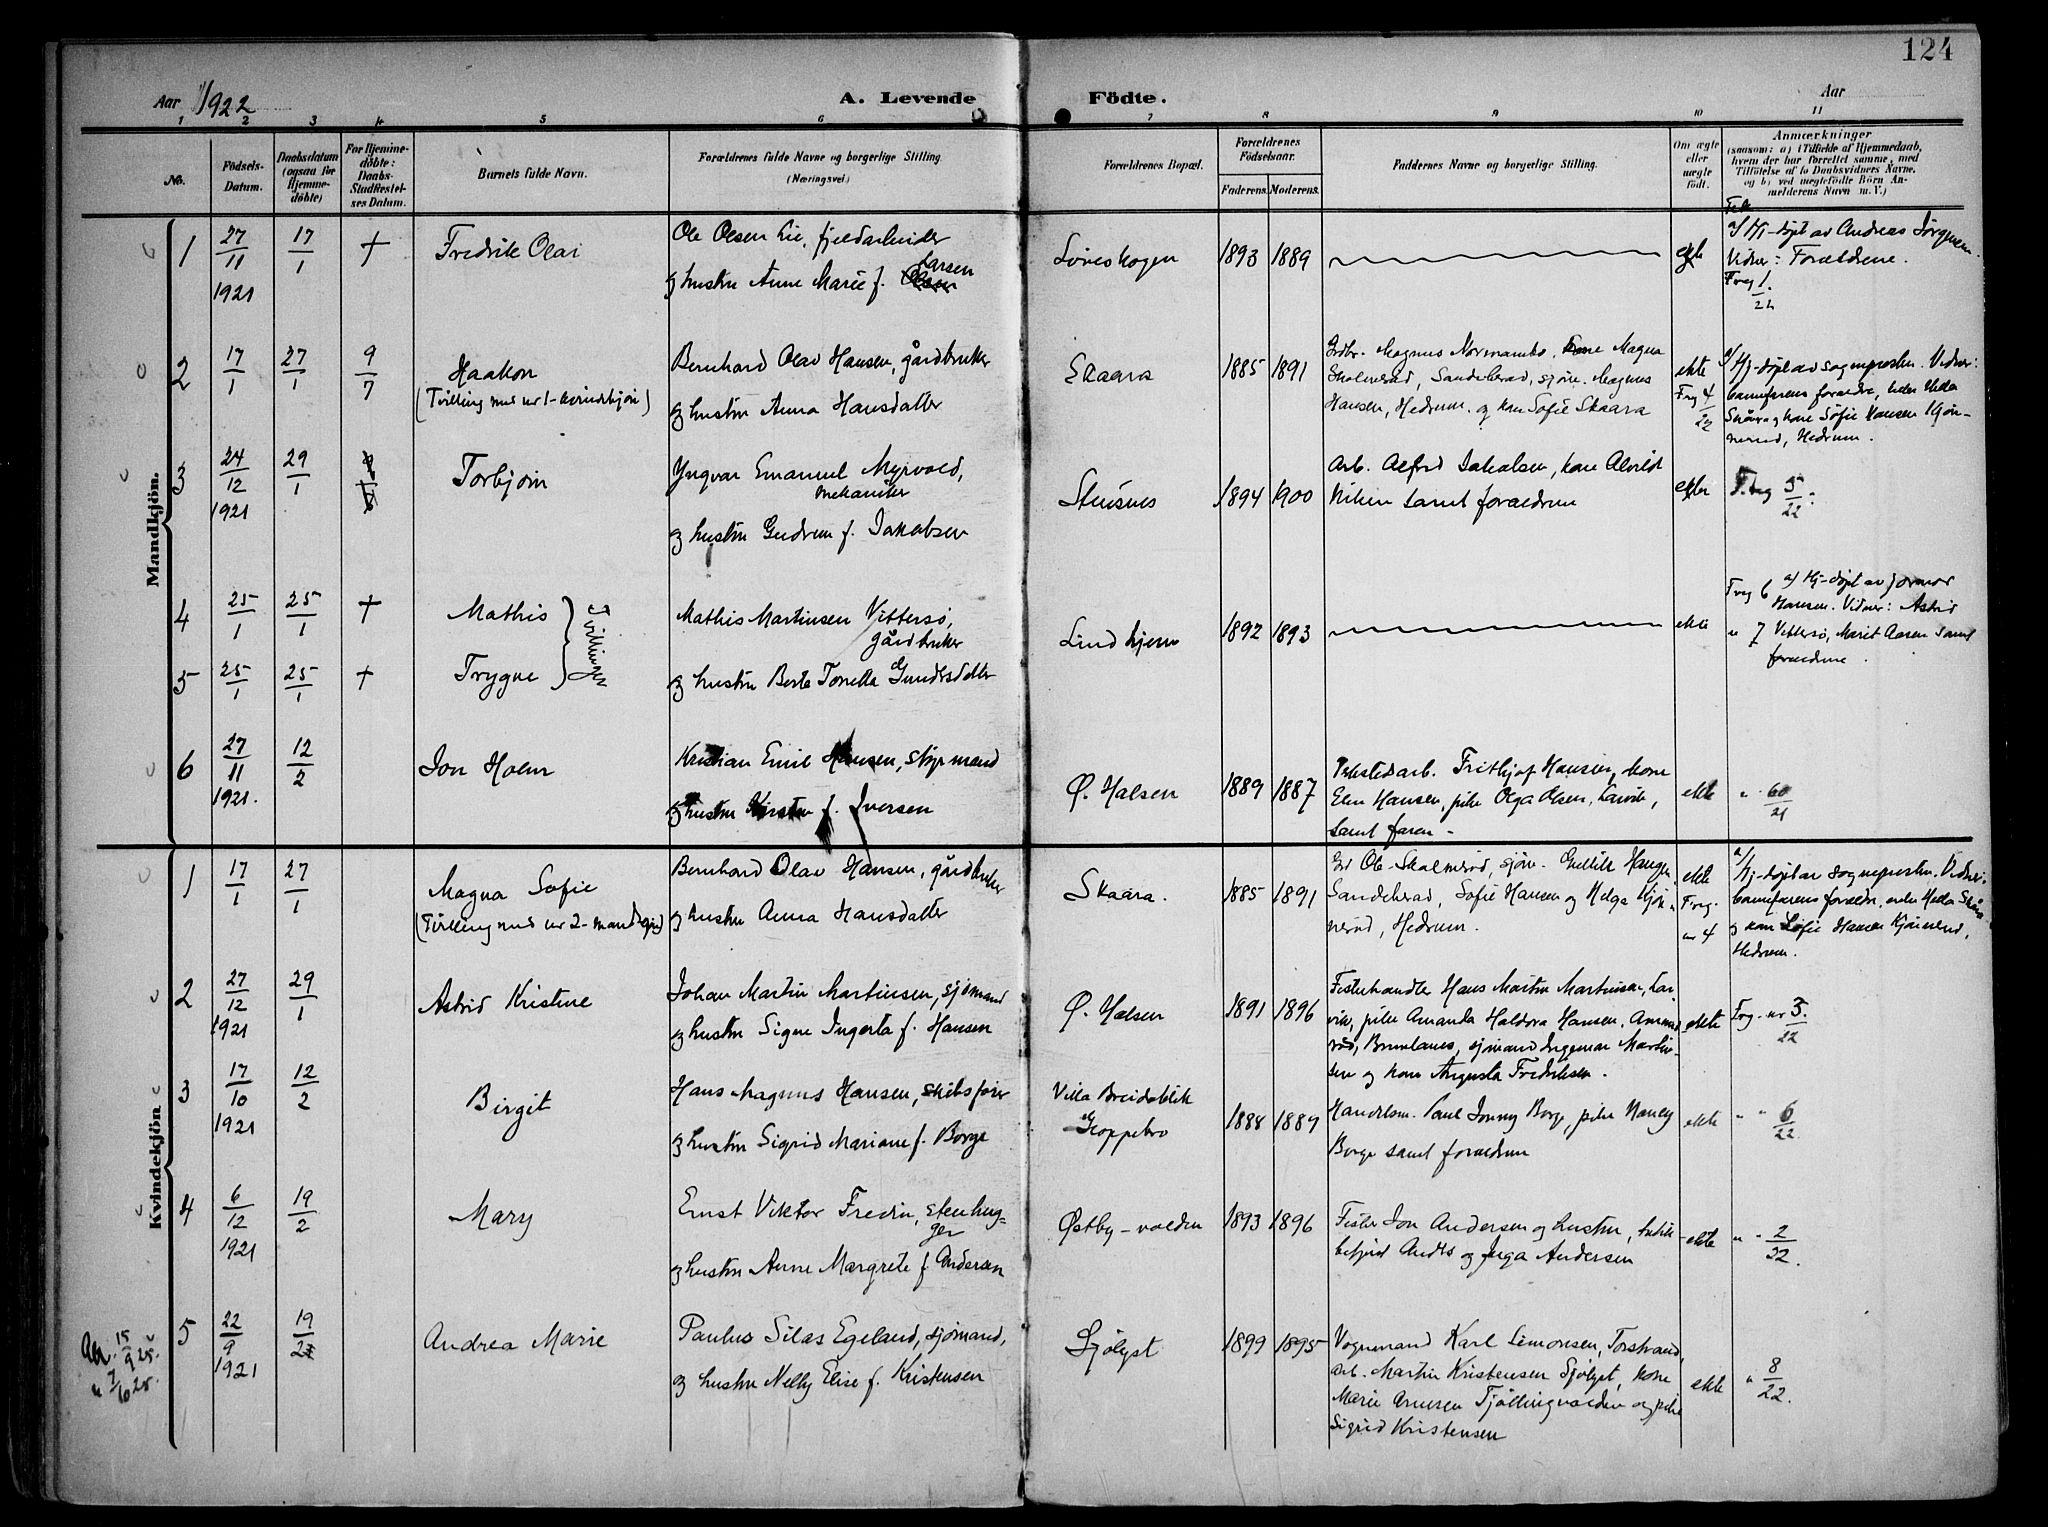 124
Aar 1922
A. Levende
Födte.
Aar
1 2 3 4 5 6 7 8 9 10 11
No.
Födsels-
Datum.
Daabsdatum
(ogsaa for
Hjemme-
döbte)
For Hjemme-
döbte:
Daabs-
Stadfæstel-
ses Datum.
Barnets fulde Navn.
Forældrenes fulde Navne og borgerlige Stilling.
(Næringsvei.)
Forældrenes Bopæl.
Forældrenes
Födselsaar.
Faderens. Moderens.
Faddernes Navne og borgerlige Stilling.
Om ægte
eller
uægte
födt.
Anmærkninger
(saasom: a) i Tilfælde af Hjemmedaab,
hvem der har forrettet samme, med
Tilföielse af to Daabsvidners Navne,
og b) ved uægtefödte Börn An-
melderens Navn m. V.)
Mandkjön.
1 27/11 1921 17/1 † Fredrik Olai
Ole Olsen Lie, fjeldarbeider
og hustru Anne Marie f. Larsen
Löveskogen 1893 1889 ekte
a) Hj-döpt av Andreas Jörgensen.
Vidner: Forældrene.
Frag 1/22
2 17/1 27/1 9/7 Haakon
(Tvilling med nr 1 - kvindekjön)
Bernhard Olav Hansen, gårdbruker
og hustru Anna Hansdatter
Skaara 1885 1891
Magnus Kone Magna
Skolmeröd, Sandeherad, sjöm. Magnus
Hansen, Hedrum og kone Sofie Skaara
ekte
Frag 4/22
a) Hj-döpt av sognepresten. Vidner:
barnefarens forældre, enken Helia
Skåra og kone Sofie Hansen Kjön-
neröd, Hedrum.
3 24/12 1921 29/1 Torbjörn
Yngvar Emanuel Myrvold,
mekaniker
og hustru Gudrun f. Jakobsen
Stusnes 1894 1900
Arb. Alfred Jakobsen, kone Alvild
Nilsen samt forældrene
ekte
Frag 5/22
4 25/1 25/1 † Mathis
5 25/1 25/1 † Trygve
Tvillinger
Mathis Martinsen Vittersö,
gårdbruker
og hustru Berta Torella Gundersdatter
Lindhjem 1892 1893 ekte
Frag 6 a) Hj-döpt av jormor
Hansen. Vidner: Astrid
" 7 Vittersö, Marit Aasen samt
forældrene.
6 27/11 1921. 12/2 Jon Holm
Kristian Emil Hansen, styrmand
og hustru Kirsten f. Iversen
Ö. Halsen 1889 1887
Frithjof Hansen, kone
Elen Hansen, pike Olga Olsen, Larvik,
samt faren -
ekte " 60/21
Kvindekjön
1 17/1 27/1 Magna Sofie
(Tvilling med nr 2 - mandkjön)
Bernhard Olav Hansen, gårdbruker
og hustru Anna Hansdatter
Skaara. 1885 1891
Ole Skolmeröd, sjöm. Hansen
Sandeherad, Sofie Hansen og Helga Kjön-
neröd, Hedrum.
ekte
Frag.
nr 4
a) Hj-döpt av sognepresten. Vidner:
barnefarens forældre, enken Helia Skåra
og kone Sofie Hansen Kjönneröd,
Hedrum.
2 27/12 1921 29/1 Astrid Kristine
Johan Martin Martinsen, sjömand
og hustru Signe Ingerta f. Hansen
Ö. Halsen 1891 1896
Fiskehandler Hans Martin Martinsen, Lar-
vik, pike Amanda Haldora Hansen,
Brunlanes, sjömand Ingemar Martin-
sen og kone Augusta Fredriksen.
ekte Frag. nr 3/22
3 17/10 1921 12/2 Birgit
Hans Magnus Hansen, skibsförer
og hustru Sigrid Mariane f. Borge
Villa Breidablik
Gloppebro
1888 1889
Handelsm. Paul Jonny Borge, pike Nancy
Borge samt forældrene
ekte " " 6/22
4 6/12 1921 19/2 Mary
Ernst Viktor Fredin, stenhug-
ger
og hustru Anne Margrete f. Andersen
Östby-volden 1893 1896
Fisker Jon Andersen og hustru,
Andrs og Inga Andersen
ekte " " 2/22.
5 22/9 1921 19/2 Andrea Marie
15/9 25.
Paulus Silas Egeland, sjömand,
og hustru Nelly Elise f. Kristensen
Sjölyst 1899 1895
Vognmand Karl Simonsen, Torstrand,
arb. Martin Kristensen Sjölyst, kone
Marie Arnesen Tjöllingvolden og pike
Sigrid Kristensen
ekte " 8/22.